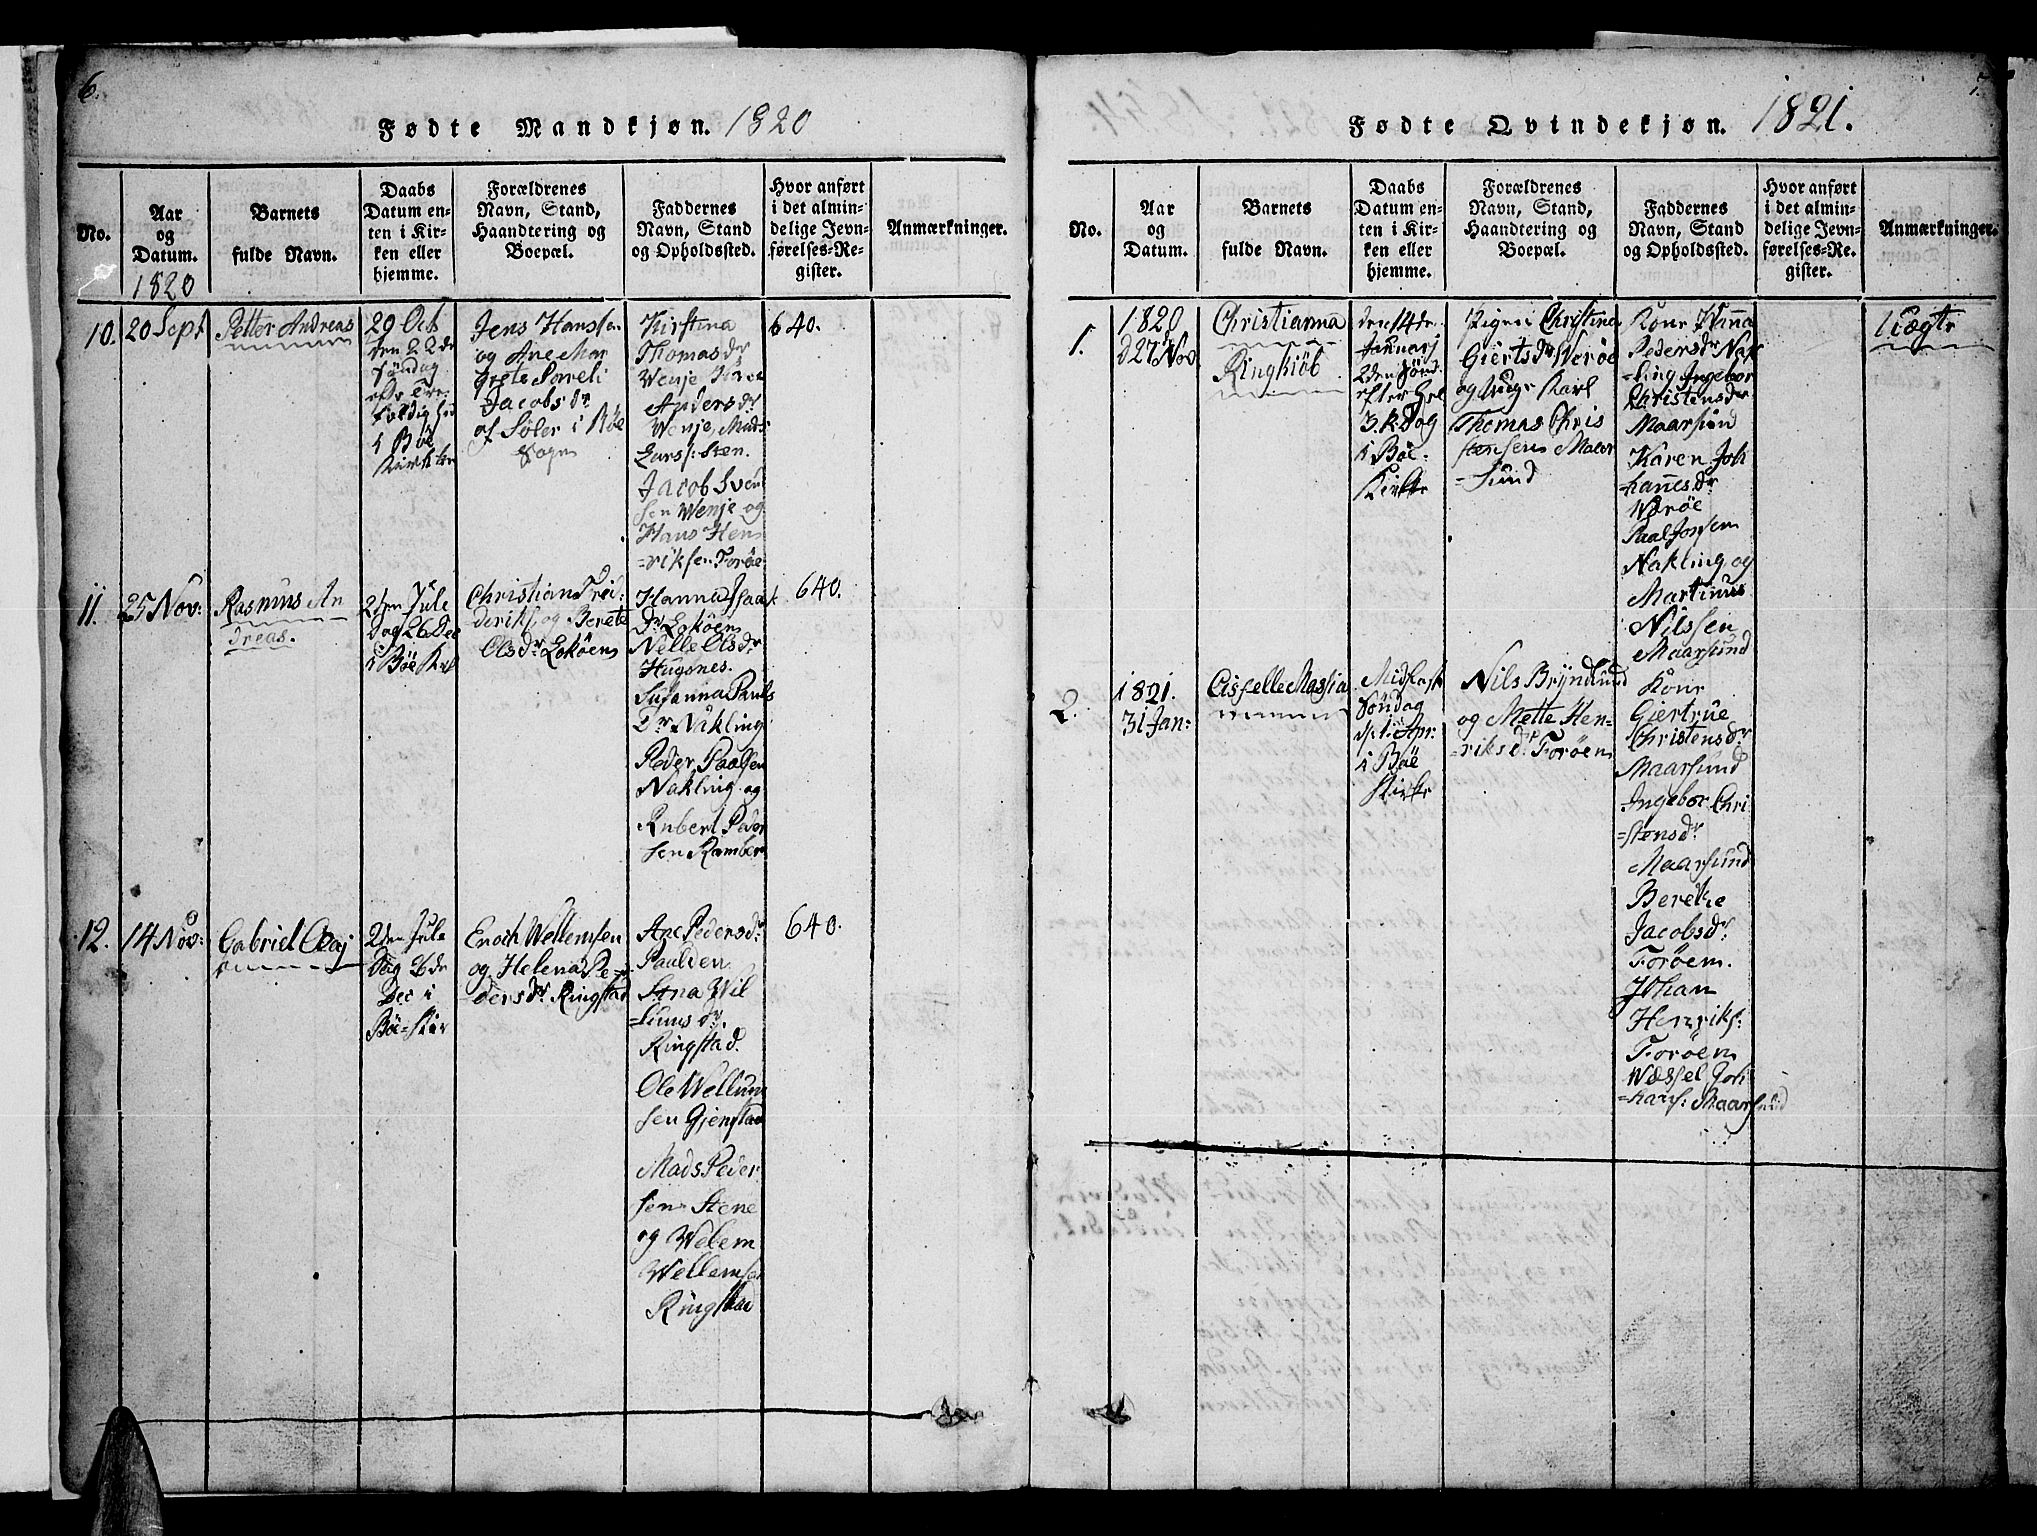 6.
Fødte Mandkjøn. 1820
No.
Aar
og
Datum.
1820
Barnets
fulde Navn.
Daabs
Datum en-
ten i Kir-
ken eller
hjemme.
Forældrenes
Navn, Stand,
Haandtering og
Boepæl.
Faddernes
Navn, Stand
og Opholdssted.
Hvor anført
i det almin-
delige Jevn-
førelses-Re-
gister.
Anmærkninger.
10.
20 Sept
Petter Andreas
29 Oct
den 22de
Søndag
i Böe
Kirke
Jens Hansen
og Ane Mar
grete
Jacobsdr
af Søler i Böe
Sogn
Kirstina
Thomasdr
Wenje
Andersdr
Wenje, Mads
Larss: Sten.
Jacob Svend
sen Wenje og
Hans Hen
=riksen Foröe
640.
11.
25 Nov:
Rasmus An
dreas.
2den Jule
Dag 26 Dec
i Böe Kirk
Christian Frei
deriks, og Berete
Olsdr Eköen
Hanna Isaak
dr Eköen
Nelle Olsdr
Hugsnes.
Susanna Pauls
dr Nikling
Peder Paalsen
Nakling og
Rubert Peder
sen Ramber
640.
12.
14 Nov:
Gabriel Olaj
2den Jule
Dag 26de
Dec i
Böe Kir
Enoch Wellemsen
og Helena Pe-
dersdr Ringstad
Ane Pedersdr
Paulien
Stna Wil
=lumsdr.
Ringstad.
Ole Wellum
sen Gjenstad
Mads Peder
sen Stene
og Welem
Wellemsen
Ringstad
640.
7.
Fødte Qvindekjøn. 1821.
No.
Aar
og
Datum.
Barnets
fulde Navn.
Daabs
Datum en-
ten i Kir-
ken eller
hjemme.
Forældrenes
Navn, Stand,
Haandtering og
Boepæl.
Faddernes
Navn, Stand
og Opholdssted.
Hvor anført
i det almin-
delige Jevn-
førelses-Re-
gister.
Anmærkninger.
1.
1820
d 27 Nov
Christianna
Ringkiöb
den 14de
Januarj
2den Sönd
efter Hel
3.K.Dag
i Böe
Kirke
Pigen Christina
Giertsdr Weröe
og Unge Karl
Thomas Chris
stensens Maar
=sund
Kone Hanna
Pedersdr Nak
=ling, Ingebor
Christensdr
Maarsund
Karen Joh
=hannesdr
Weröe
Paal Jonsen
Nakling og
Martinus
Nilssen
Maarsund
Uægte
2.
1821.
31 Jan:
Cisselle Massia
Midfaste
Söndag
d: 1. Apr:
i Böe
Kirke
Nils Bryndlund
og Mette Hen=
=riksdr Foröen
Kone
Giertrue
Christensdr
Maarsund
Ingebor Chri
=stensdr
Maarsund
Berethe
Jacobsdr
Foröen.
Johan
Henriks:
Foröen
Wessel Joh
=hans: Maarsund